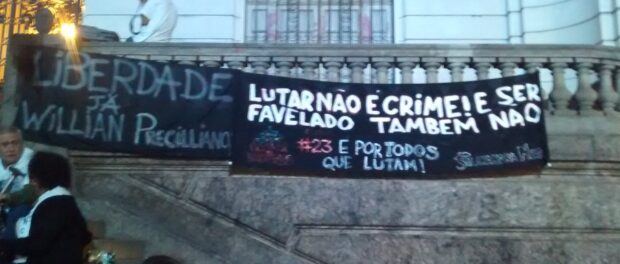 LIBERDADE
JÁ
WILLIAN PRECILLIANO
LUTAR NÃO É CRIME! E SER
FAVELADO TAMBÉM NÃO
#23 E POR TODOS
QUE LUTAM!